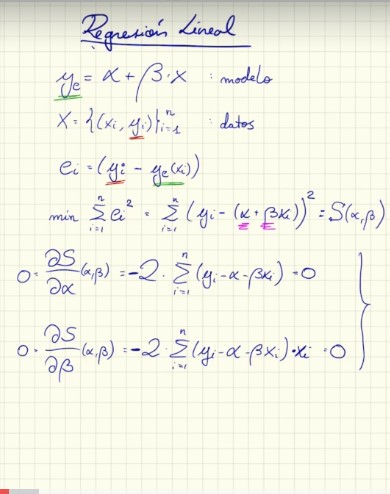 Regresión Lineal
y_e = α + β·x : modelo
X = {(x_i, y_i)}_{i=1}^n : datos
e_i = (y_i - y_e(x_i))
min Σ_{i=1}^n e_i² = Σ_{i=1}^n (y_i - (α + βx_i))² = S(α,β)
0 = ∂S/∂α (α,β) = -2 · Σ_{i=1}^n (y_i - α - βx_i) = 0
0 = ∂S/∂β (α,β) = -2 · Σ_{i=1}^n (y_i - α - βx_i)·x_i = 0 }